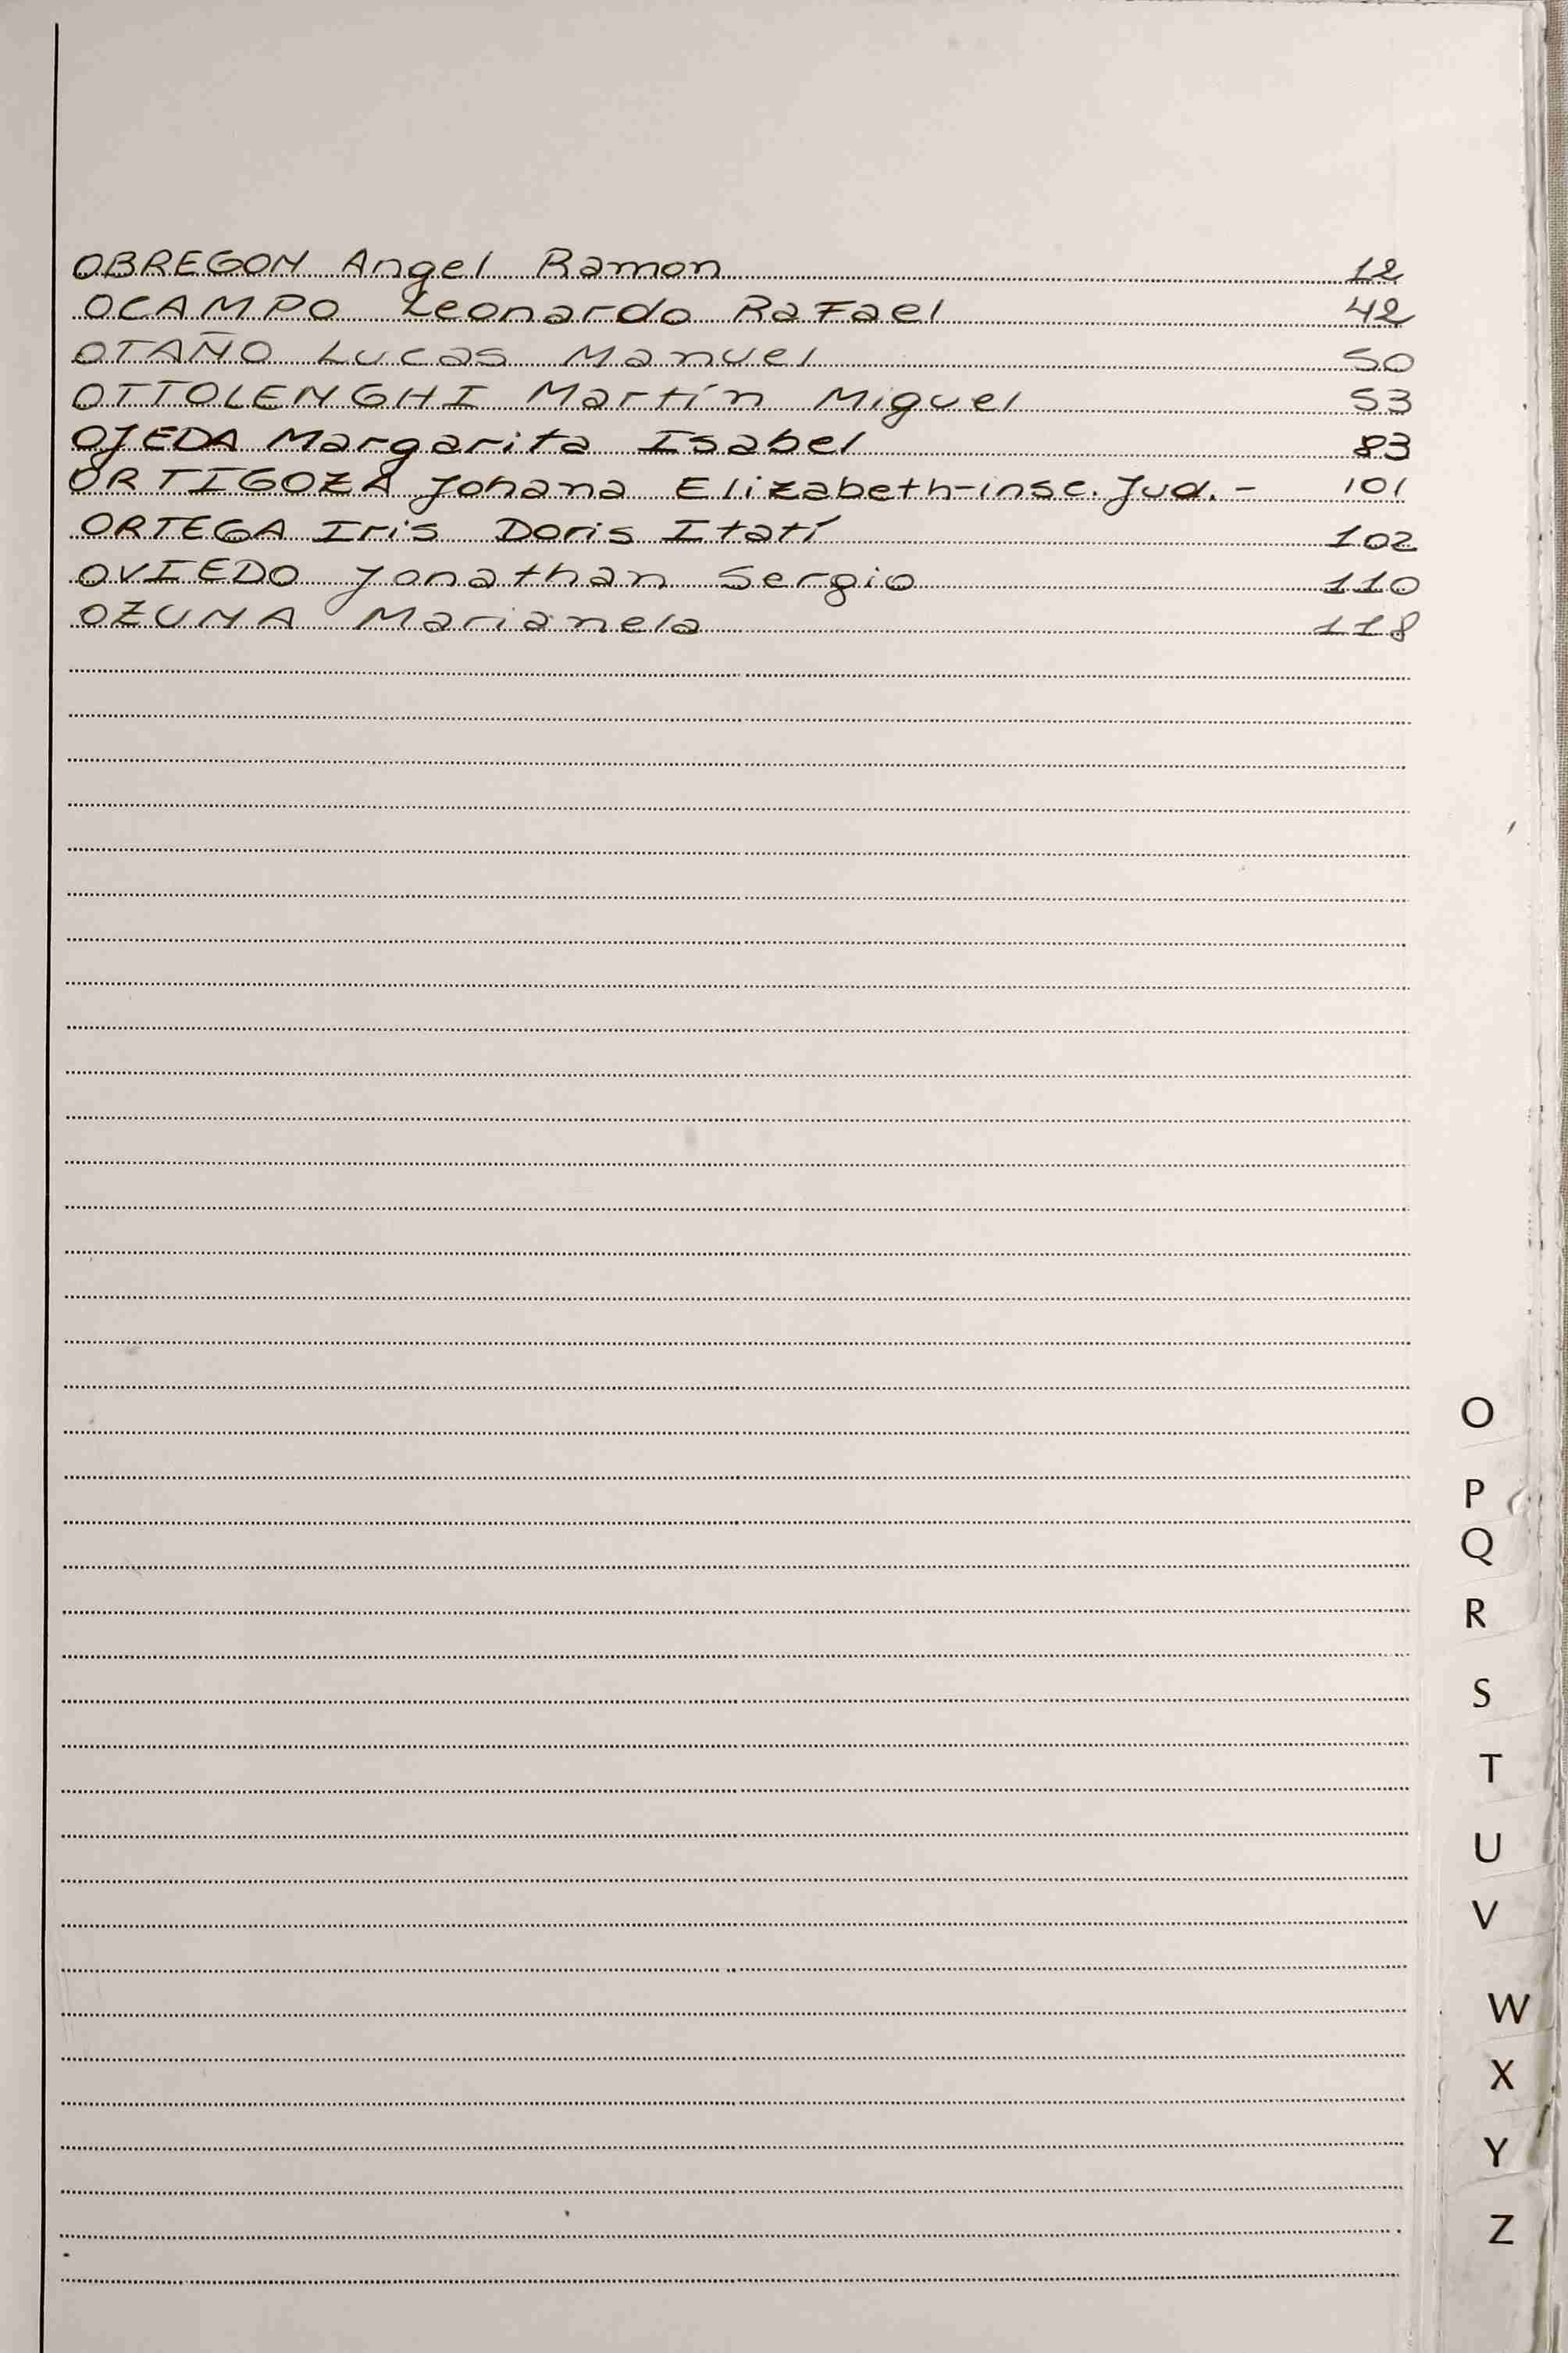 OBREGON Angel Ramon 12
OCAMPO Leonardo Rafael 42
OTAÑO Lucas Manuel 50
OTTOLENGHI Martín Miguel 53
OJEDA Margarita Isabel 83
ORTIGOZA Johana Elizabeth-insc. Jud. - 101
ORTEGA Iris Doris Itatí 102
OVIEDO Jonathan Sergio 110
OZUNA Marianela 118
O
P
Q
R
S
T
U
V
W
X
Y
Z